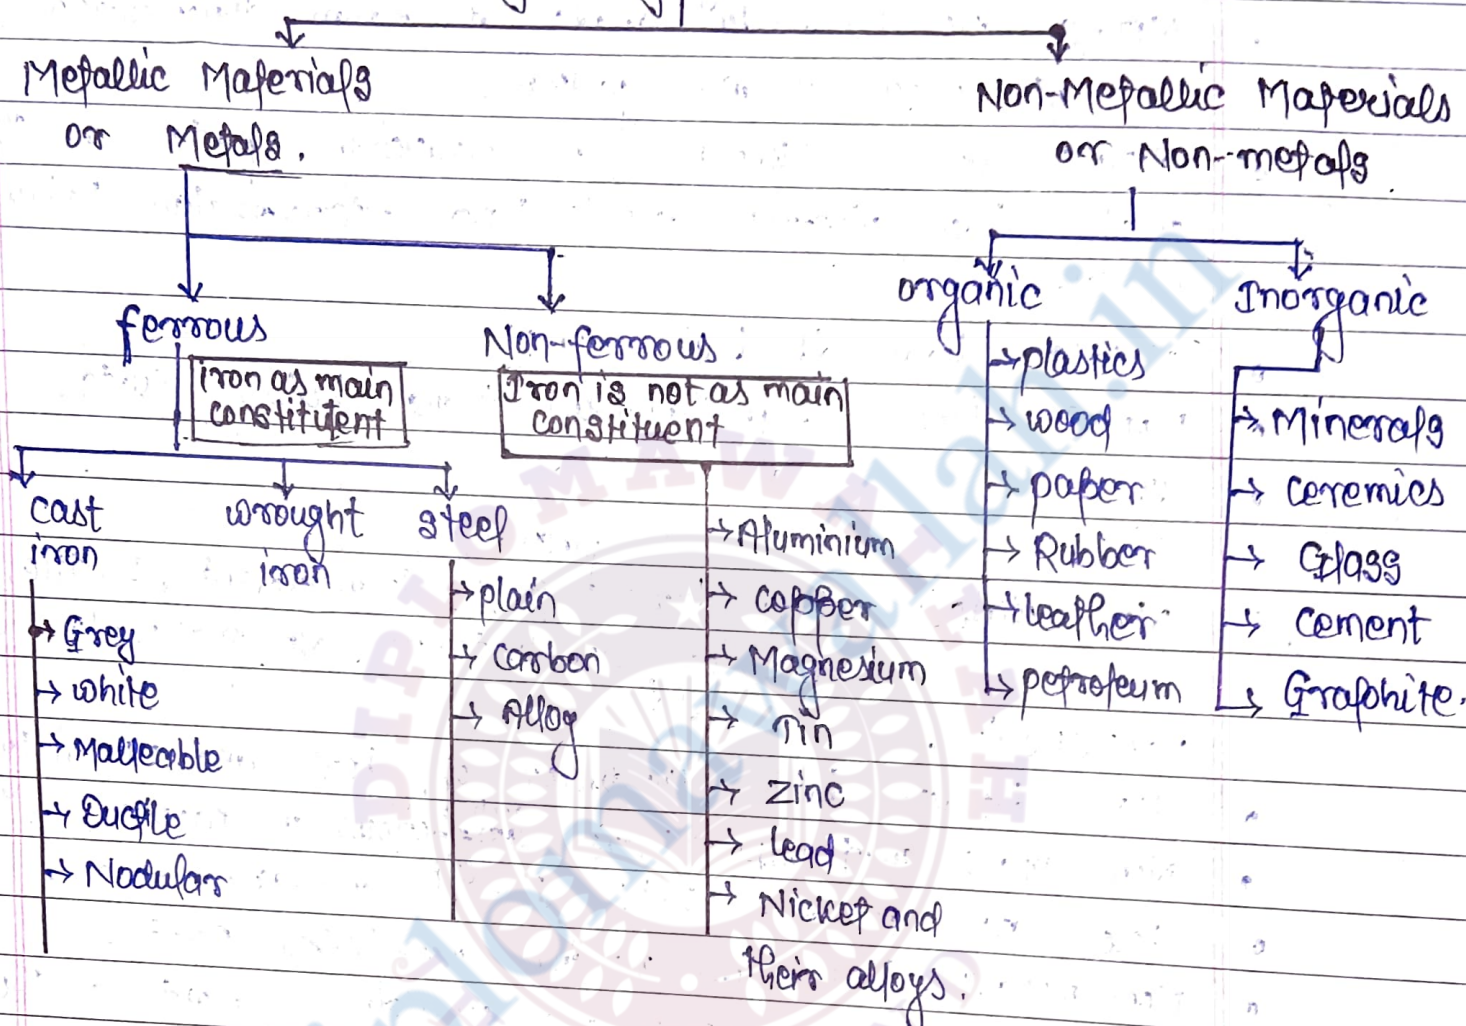 Metallic Materials
or Metals.
Non-Metallic Materials
or Non-metals.
ferrous
iron as main
constitutent
Non-ferrous.
Iron is not as main
constituent
organic
Inorganic
cast
iron
wrought
iron
steel
→ Grey
→ white
→ Malleable
→ Ductile
→ Nodular
→ plain
→ carbon
→ Alloy
→ Aluminium
→ copper
→ Magnesium
→ Tin
→ zinc
→ lead
→ Nickel and
their alloys.
→ plastics
→ wood
→ paper
→ Rubber
→ leather
→ petroleum
→ Minerals
→ ceremics
→ Glass
→ cement
→ Graphite.
DIPLOMAWALLAH
diplomawallah.in